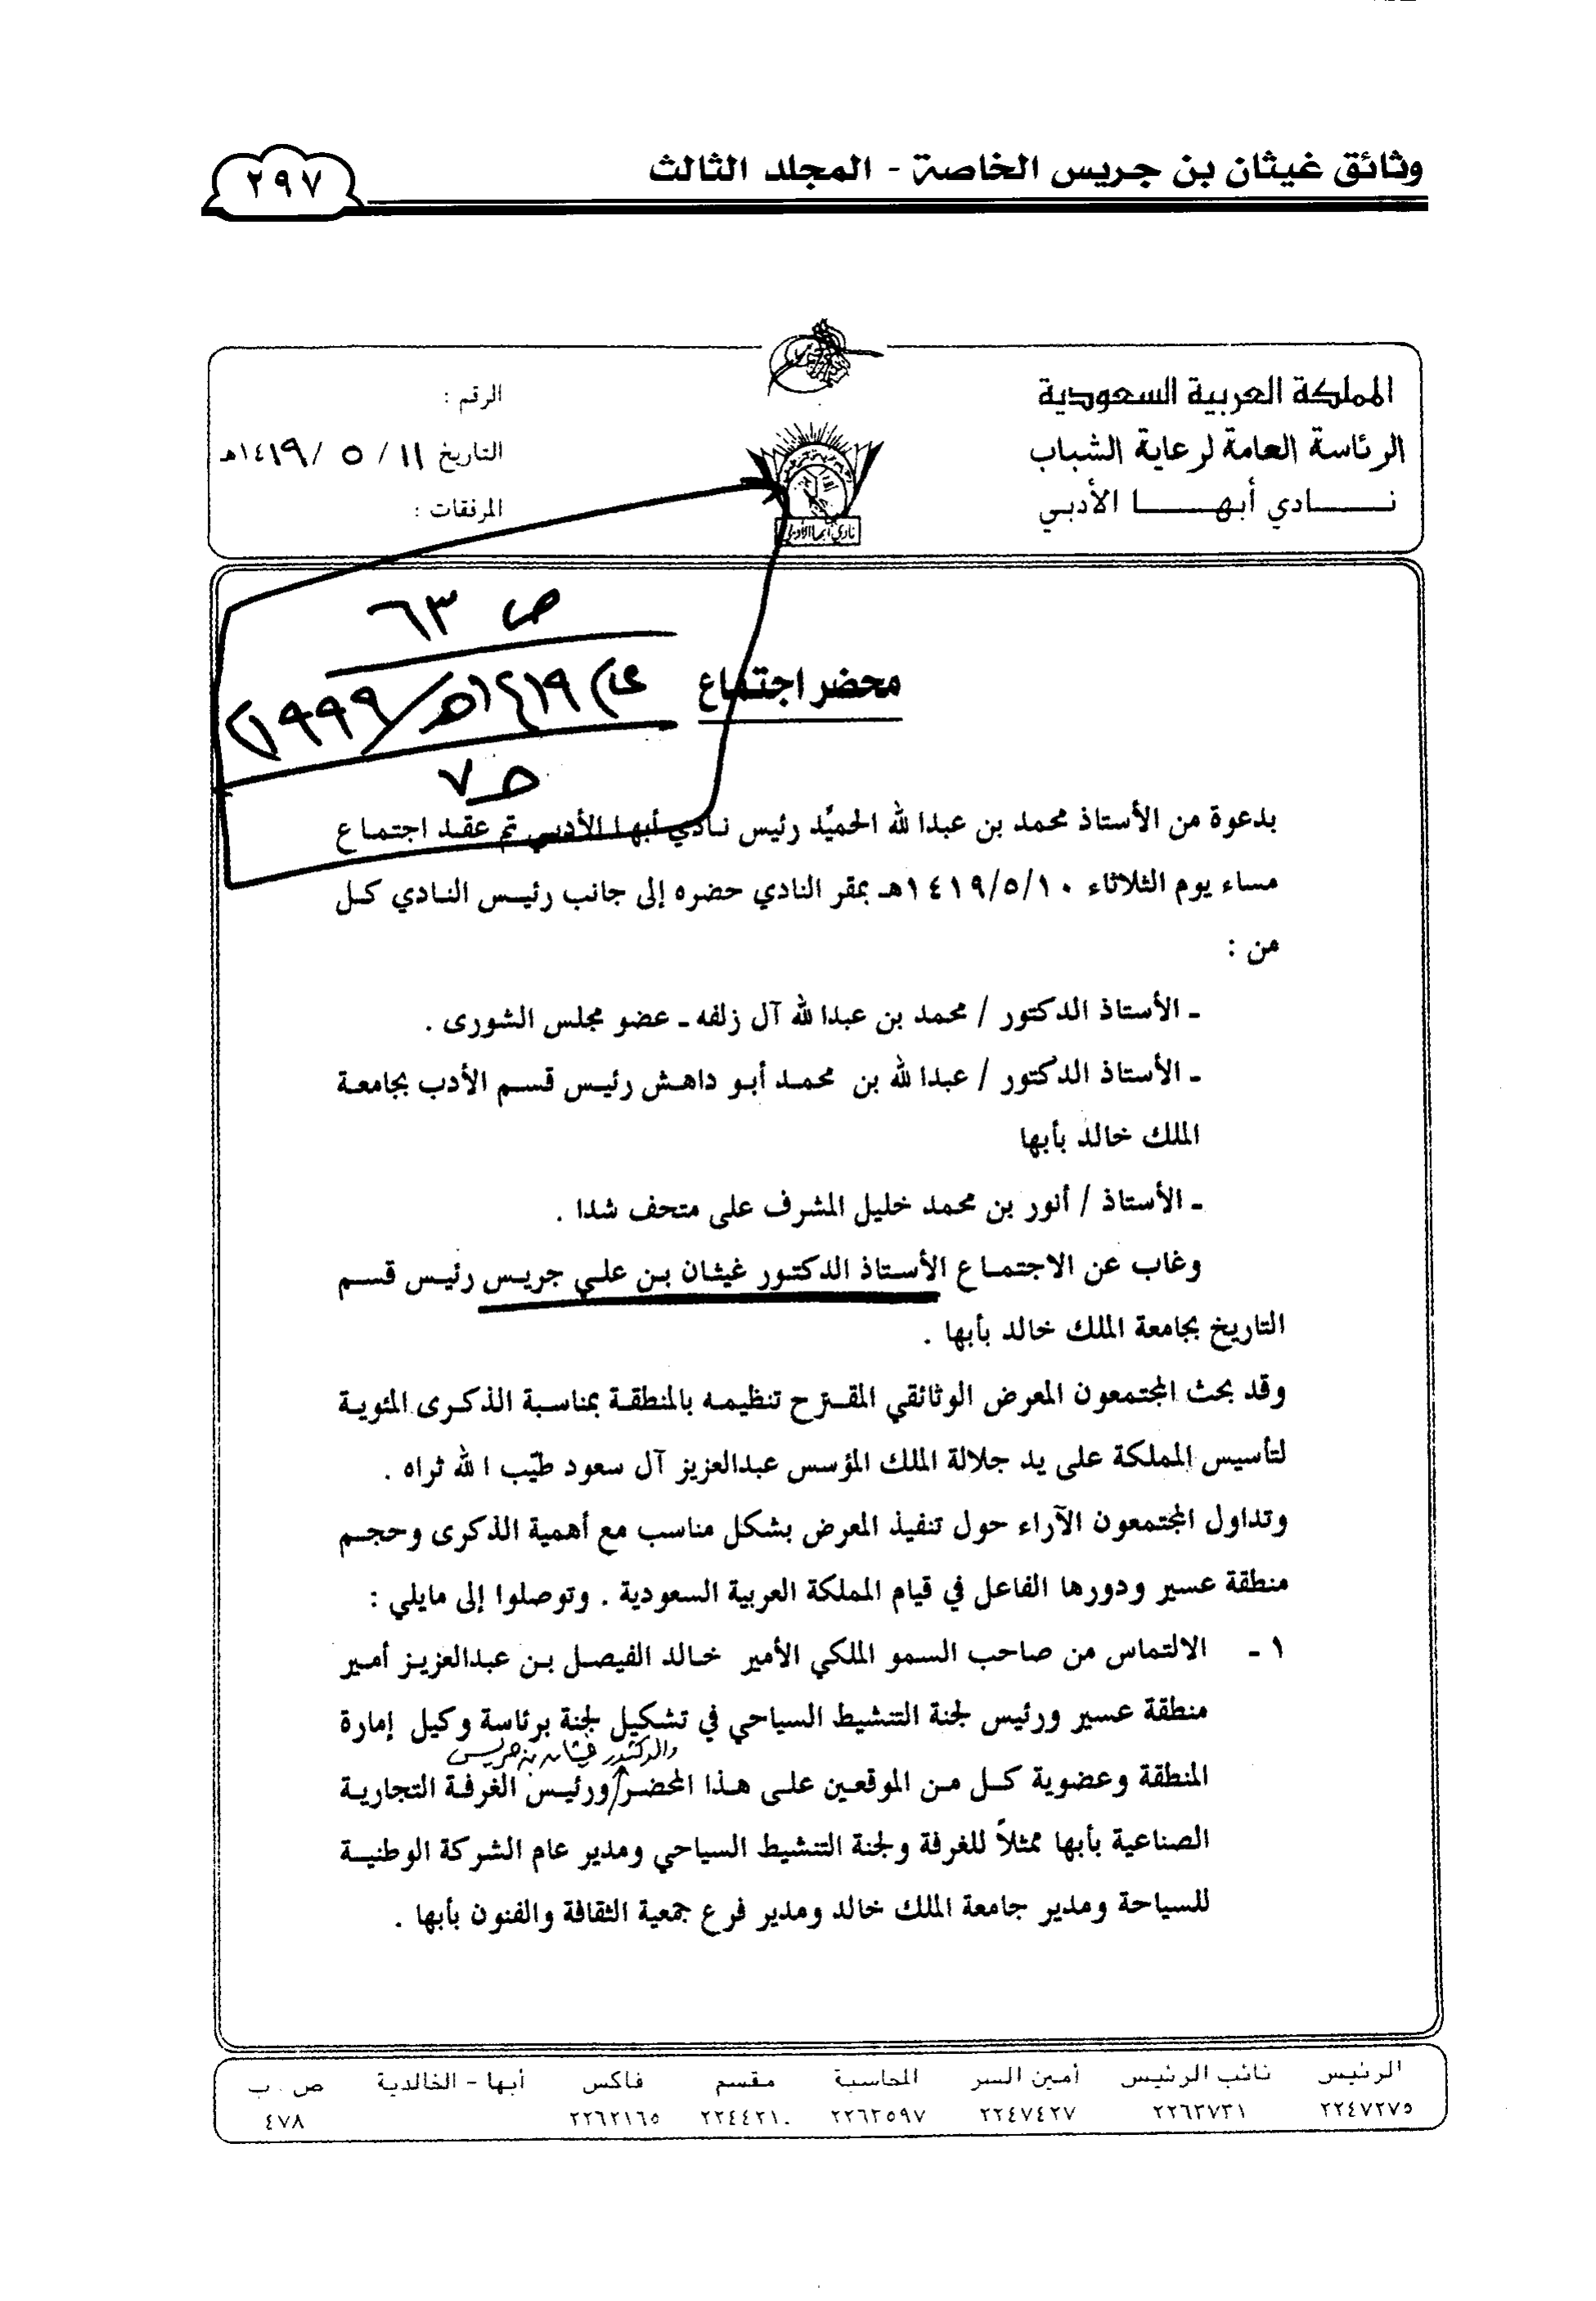 وثائق غيثان بن جريس الخاصة - المجلد الثالث
٢٩٧
المملكة العربية السعودية
الرئاسة العامة لرعاية الشباب
نـــــادي أبهـــــا الأدبي
نادي أبها الأدبي
الرقم :
التاريخ ١١ / ٥ / ١٤١٩هـ
المرفقات :
ص ٦٣
١٤١٩هـ / ١٩٩٩
محضر اجتماع
بدعوة من الأستاذ محمد بن عبدا لله الحميِّد رئيس نـادي أبهـا الأدبـي تم عقـد اجتمـاع
مساء يوم الثلاثاء ١٤١٩/٥/١٠هـ بمقر النادي حضره إلى جانب رئيـس النـادي كـل
من :
ـ الأستاذ الدكتور / محمد بن عبدا لله آل زلفه ـ عضو مجلس الشورى .
ـ الأستاذ الدكتور / عبدا لله بن محمـد أبـو داهـش رئيـس قسـم الأدب بجامعـة
الملك خالد بأبها
ـ الأستاذ / أنور بن محمد خليل المشرف على متحف شدا .
وغاب عن الاجتمـاع الأسـتاذ الدكتـور غيثـان بـن علـي جريـس رئيـس قسـم
التاريخ بجامعة الملك خالد بأبها .
وقد بحث المجتمعون المعرض الوثائقي المقـترح تنظيمـه بالمنطقـة بمناسـبة الذكـرى المئويـة
لتأسيس المملكة على يد جلالة الملك المؤسس عبدالعزيز آل سعود طيّب ا لله ثراه .
وتداول المجتمعون الآراء حول تنفيذ المعرض بشكل مناسب مع أهمية الذكرى وحجـم
منطقة عسير ودورها الفاعل في قيام المملكة العربية السعودية . وتوصلوا إلى مايلي :
١ ـ الالتماس من صاحب السمو الملكي الأمير خـالد الفيصـل بـن عبدالعزيـز أمـير
منطقة عسير ورئيس لجنة التنشيط السياحي في تشكيل لجنة برئاسة وكيل إمارة
والدكتور غيثان بن جريس
المنطقة وعضوية كـل مـن الموقعـين علـى هـذا المحضـر ورئيـس الغرفـة التجاريـة
الصناعية بأبها ممثلاً للغرفة ولجنة التنشيط السياحي ومدير عام الشركة الوطنيـة
للسياحة ومدير جامعة الملك خالد ومدير فرع جمعية الثقافة والفنون بأبها .
الرئيس نائب الرئيس أمين السر المحاسبة مقسم فاكس أبها - الخالدية ص . ب
٢٢٤٧٢٧٥ ٢٢٦٢٧٣١ ٢٢٤٧٤٢٧ ٢٢٦٢٥٩٧ ٢٢٤٤٢١٠ ٢٢٦٢١٦٥ ٤٧٨